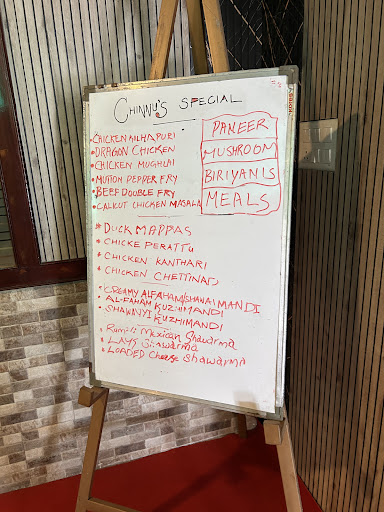 CHINNU'S SPECIAL
CHICKEN KILHAPURI
DRAGON CHICKEN
CHICKEN MUGHLAI
MUTTON PEPPER FRY
BEEF DOUBLE FRY
CALICUT CHICKEN MASALA
PANEER
MUSHROOM
BIRIYANIS
MEALS
DUCK MAPPAS
CHICKE PERATTU
CHICKEN KANTHARI
CHICKEN CHETTINAD
CREAMY ALFAHAM/SHAWAI MANDI
AL-FAHAM KUZHIMANDI
SHAWAYI KUZHIMANDI
Rumali Mexican Shawarma
LAYS Shawarma
LOADED Cheese Shawarma